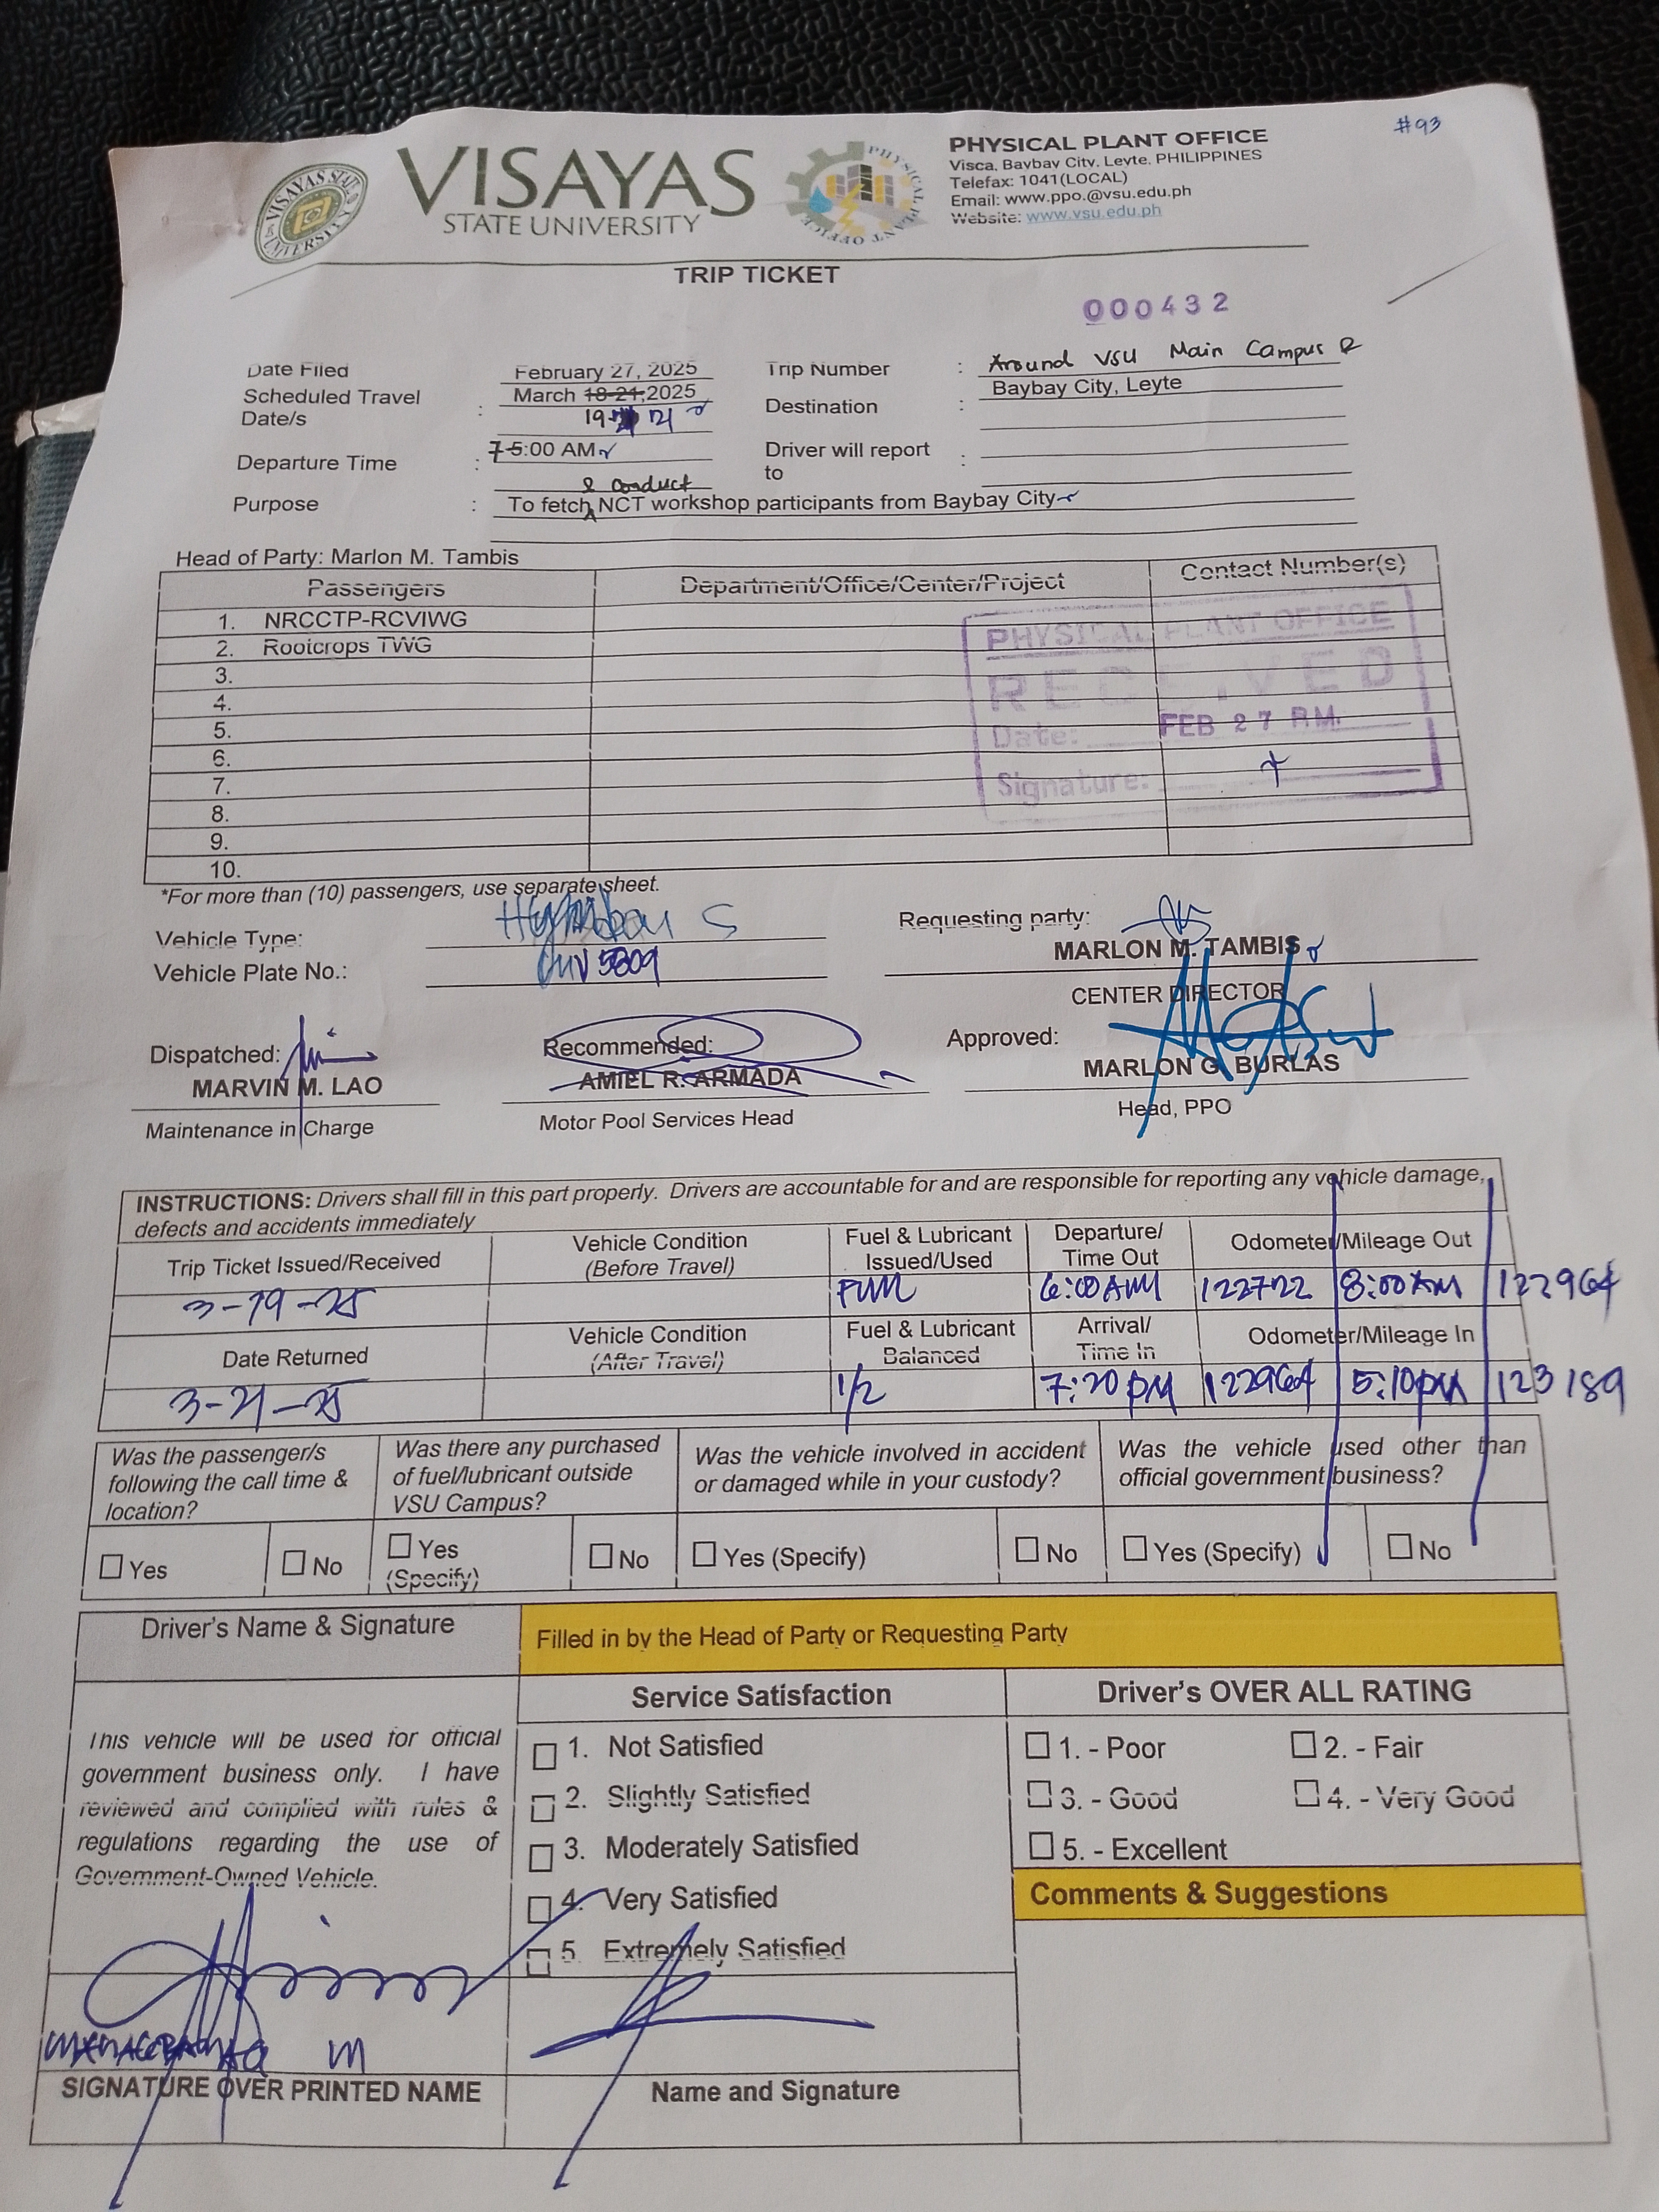 #93
VISAYAS
STATE UNIVERSITY
VISAYAS STATE UNIVERSITY
PHYSICAL PLANT OFFICE
PHYSICAL PLANT OFFICE
Visca, Baybay City, Leyte, PHILIPPINES
Telefax: 1041(LOCAL)
Email: www.ppo.@vsu.edu.ph
Website: www.vsu.edu.ph
TRIP TICKET
000432
Date Filed February 27, 2025 Trip Number : Around VSU Main Campus &
Scheduled Travel Date/s : March 18-21,2025 Destination : Baybay City, Leyte
19- 21
Departure Time : 7 5:00 AM Driver will report to :
& conduct
Purpose : To fetch NCT workshop participants from Baybay City
Head of Party: Marlon M. Tambis
Passengers Department/Office/Center/Project Contact Number(s)
1. NRCCTP-RCVIWG
2. Rootcrops TWG
3.
4.
5.
6.
7.
8.
9.
10.
PHYSICAL PLANT OFFICE
RECEIVED
Date: FEB 27 P.M.
Signature:
*For more than (10) passengers, use separate sheet.
Vehicle Type: Requesting party:
Vehicle Plate No.: 5809 MARLON M. TAMBIS
CENTER DIRECTOR
Dispatched: Recommended: Approved:
MARVIN M. LAO AMIEL R. ARMADA MARLON G. BURLAS
Maintenance in Charge Motor Pool Services Head Head, PPO
INSTRUCTIONS: Drivers shall fill in this part properly. Drivers are accountable for and are responsible for reporting any vehicle damage,
defects and accidents immediately
Trip Ticket Issued/Received Vehicle Condition (Before Travel) Fuel & Lubricant Issued/Used Departure/ Time Out Odometer/Mileage Out
3-19-25 Full 6:00 AM 122722 8:00 AM 122964
Date Returned Vehicle Condition (After Travel) Fuel & Lubricant Balanced Arrival/ Time In Odometer/Mileage In
3-21-25 1/2 7:20 PM 122964 5:10 PM 123189
Was the passenger/s following the call time & location? Was there any purchased of fuel/lubricant outside VSU Campus? Was the vehicle involved in accident or damaged while in your custody? Was the vehicle used other than official government business?
☐ Yes ☐ No ☐ Yes (Specify) ☐ No ☐ Yes (Specify) ☐ No ☐ Yes (Specify) ☐ No
Driver's Name & Signature Filled in by the Head of Party or Requesting Party
Service Satisfaction Driver's OVER ALL RATING
This vehicle will be used for official
government business only. I have
reviewed and complied with rules &
regulations regarding the use of
Government-Owned Vehicle.
☐ 1. Not Satisfied
☐ 2. Slightly Satisfied
☐ 3. Moderately Satisfied
☐ 4. Very Satisfied
☐ 5. Extremely Satisfied
☐ 1. - Poor ☐ 2. - Fair
☐ 3. - Good ☐ 4. - Very Good
☐ 5. - Excellent
Comments & Suggestions
SIGNATURE OVER PRINTED NAME Name and Signature